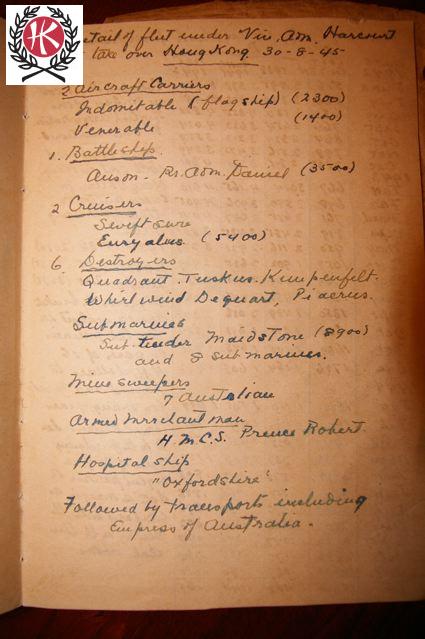 HK
Detail of fleet under Vic. Adm. Harcourt
take over Hong Kong 30-8-45-
2 Aircraft Carriers
Indomitable (flagship) (2300)
Venerable (1400)
1. Battleship.
Anson - Rr. Adm. Daniel (3500)
2 Cruisers
Swiftsure
Euryalus (5400)
6 Destroyers
Quadrant. Tuskus. Kempenfelt.
Whirlwind Dequart, Piacrus.
Submarines
Sub. tender Maidstone (8900)
and 8 submarines.
Mine sweepers
7 Australian
Armed Merchantman
H.M.C.S. Prence Robert.
Hospital ship
"Oxfordshire"
Followed by transports including
Empress of Australia.